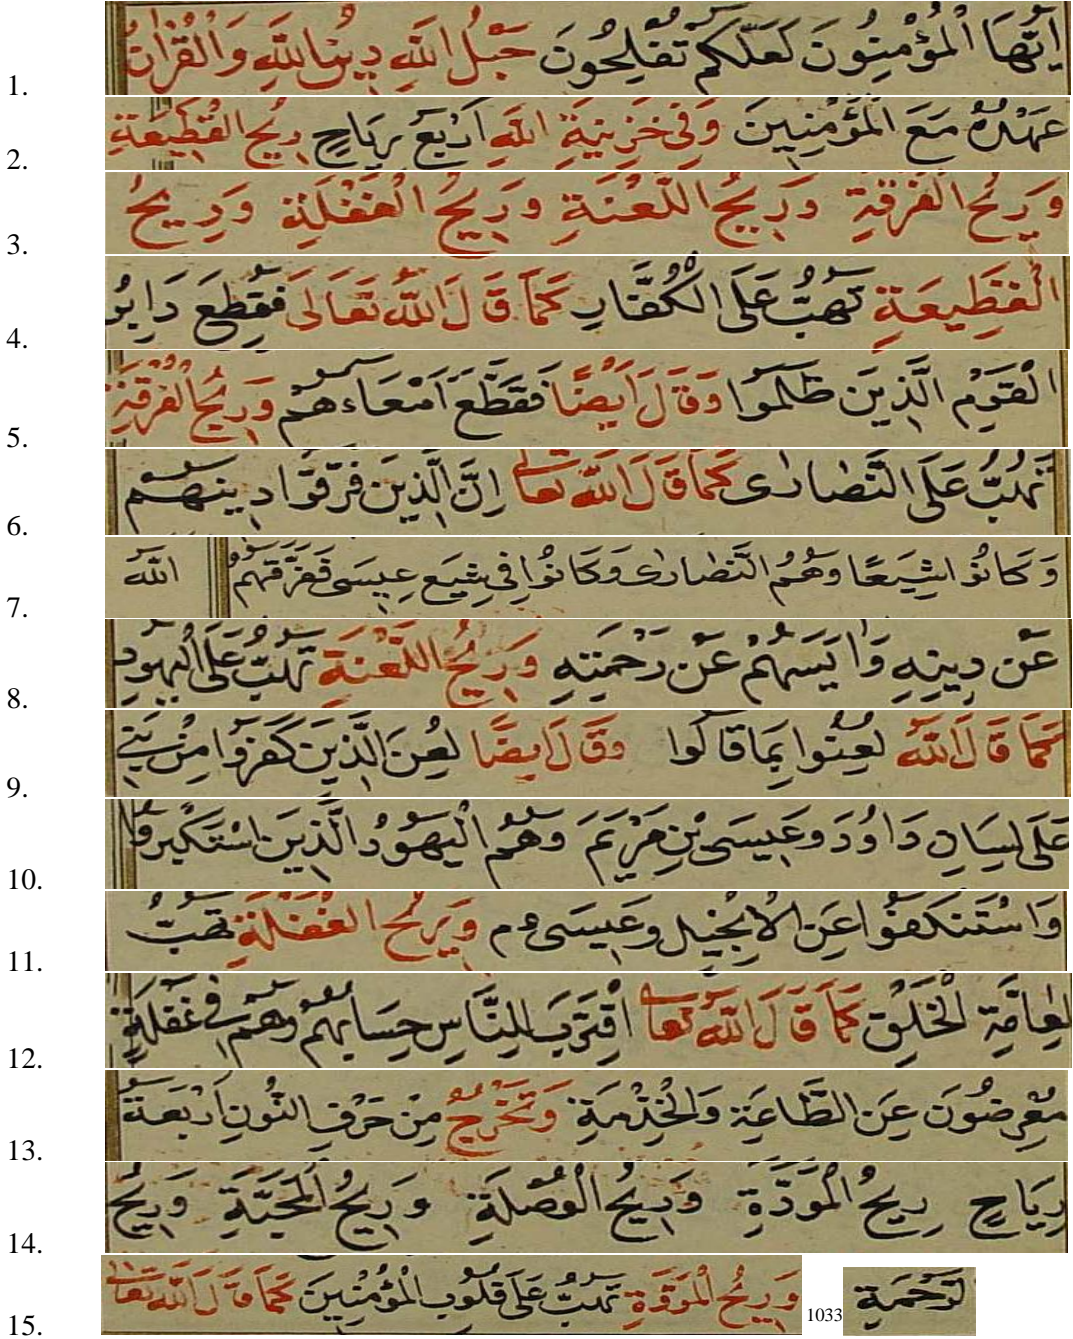 1. اَيُّهَا الْمُؤْمِنُونَ لَعَلَّكُمْ تُفْلِحُونَ حَبْلُ اللّٰهِ دِينُ اللّٰهِ وَالْقُرْاٰنُ
2. عَهْدُهُ مَعَ الْمُؤْمِنِينَ وَفِى خَزِينَةِ اللّٰهِ اَرْبَعُ رِيَاحٍ رِيحُ الْقَطِيعَةِ
3. وَرِيحُ الْفُرْقَةِ وَرِيحُ اللَّعْنَةِ وَرِيحُ الْغَفْلَةِ وَرِيحُ
4. الْقَطِيعَةِ تَهُبُّ عَلَى الْكُفَّارِ كَمَا قَالَ اللّٰهُ تَعَالَى فَقُطِعَ دَابِرُ
5. الْقَوْمِ الَّذِينَ ظَلَمُوا وَقَالَ اَيْضًا فَقَطَّعَ اَمْعَاءَهُمْ وَرِيحُ الْفُرْقَةِ
6. تَهُبُّ عَلَى النَّصَارٰى كَمَا قَالَ اللّٰهُ تعالى اِنَّ الَّذِينَ فَرَّقُوا دِينَهُمْ
7. وَكَانُوا شِيَعًا وَهُمُ النَّصَارٰى وَكَانُوا فِى شِيَعِ عِيسَى فَفَرَّقَهُمُ اللّٰهُ
8. عَنْ دِينِهِ وَاٰيَسَهُمْ عَنْ رَحْمَتِهِ وَرِيحُ اللَّعْنَةِ تَهُبُّ عَلَى الْيَهُودِ
9. كَمَا قَالَ اللّٰهُ لُعِنُوا بِمَا قَالُوا وَقَالَ اَيضًا لُعِنَ الَّذِينَ كَفَرُوا مِنْ بَنِى
10. عَلَى لِسَانِ دَاوُدَ وَعِيسَى بْنِ مَرْيَمَ وَهُمُ الْيَهُودُ الَّذِينَ اسْتَكْبَرُوا
11. وَاسْتَنْكَفُوا عَنِ الْاِنْجِيلِ وَعِيسَى ءم وَرِيحُ الْغَفْلَةِ تَهُبُّ
12. لِعَامَّةِ الْخَلْقِ كَمَا قَالَ اللّٰهُ تعالى اقْتَرَبَ لِلنَّاسِ حِسَابُهُمْ وَهُمْ فِى غَفْلَةٍ
13. مُعْرِضُونَ عَنِ الطَّاعَةِ وَالْخِدْمَةِ وَتَخْرُجُ مِنْ حَرْفِ النُّونِ اَرْبَعَةُ
14. رِيَاحٍ رِيحُ الْمَوَدَّةِ وَرِيحُ الْوُصْلَةِ وَرِيحُ الْمَحَبَّةِ وَرِيحُ
15. الرَّحْمَةِ 1033 وَرِيحُ الْمَوَدَّةِ تَهُبُّ عَلَى قُلُوبِ الْمُؤْمِنِينَ كَمَا قَالَ اللّٰهُ تَعَالَى